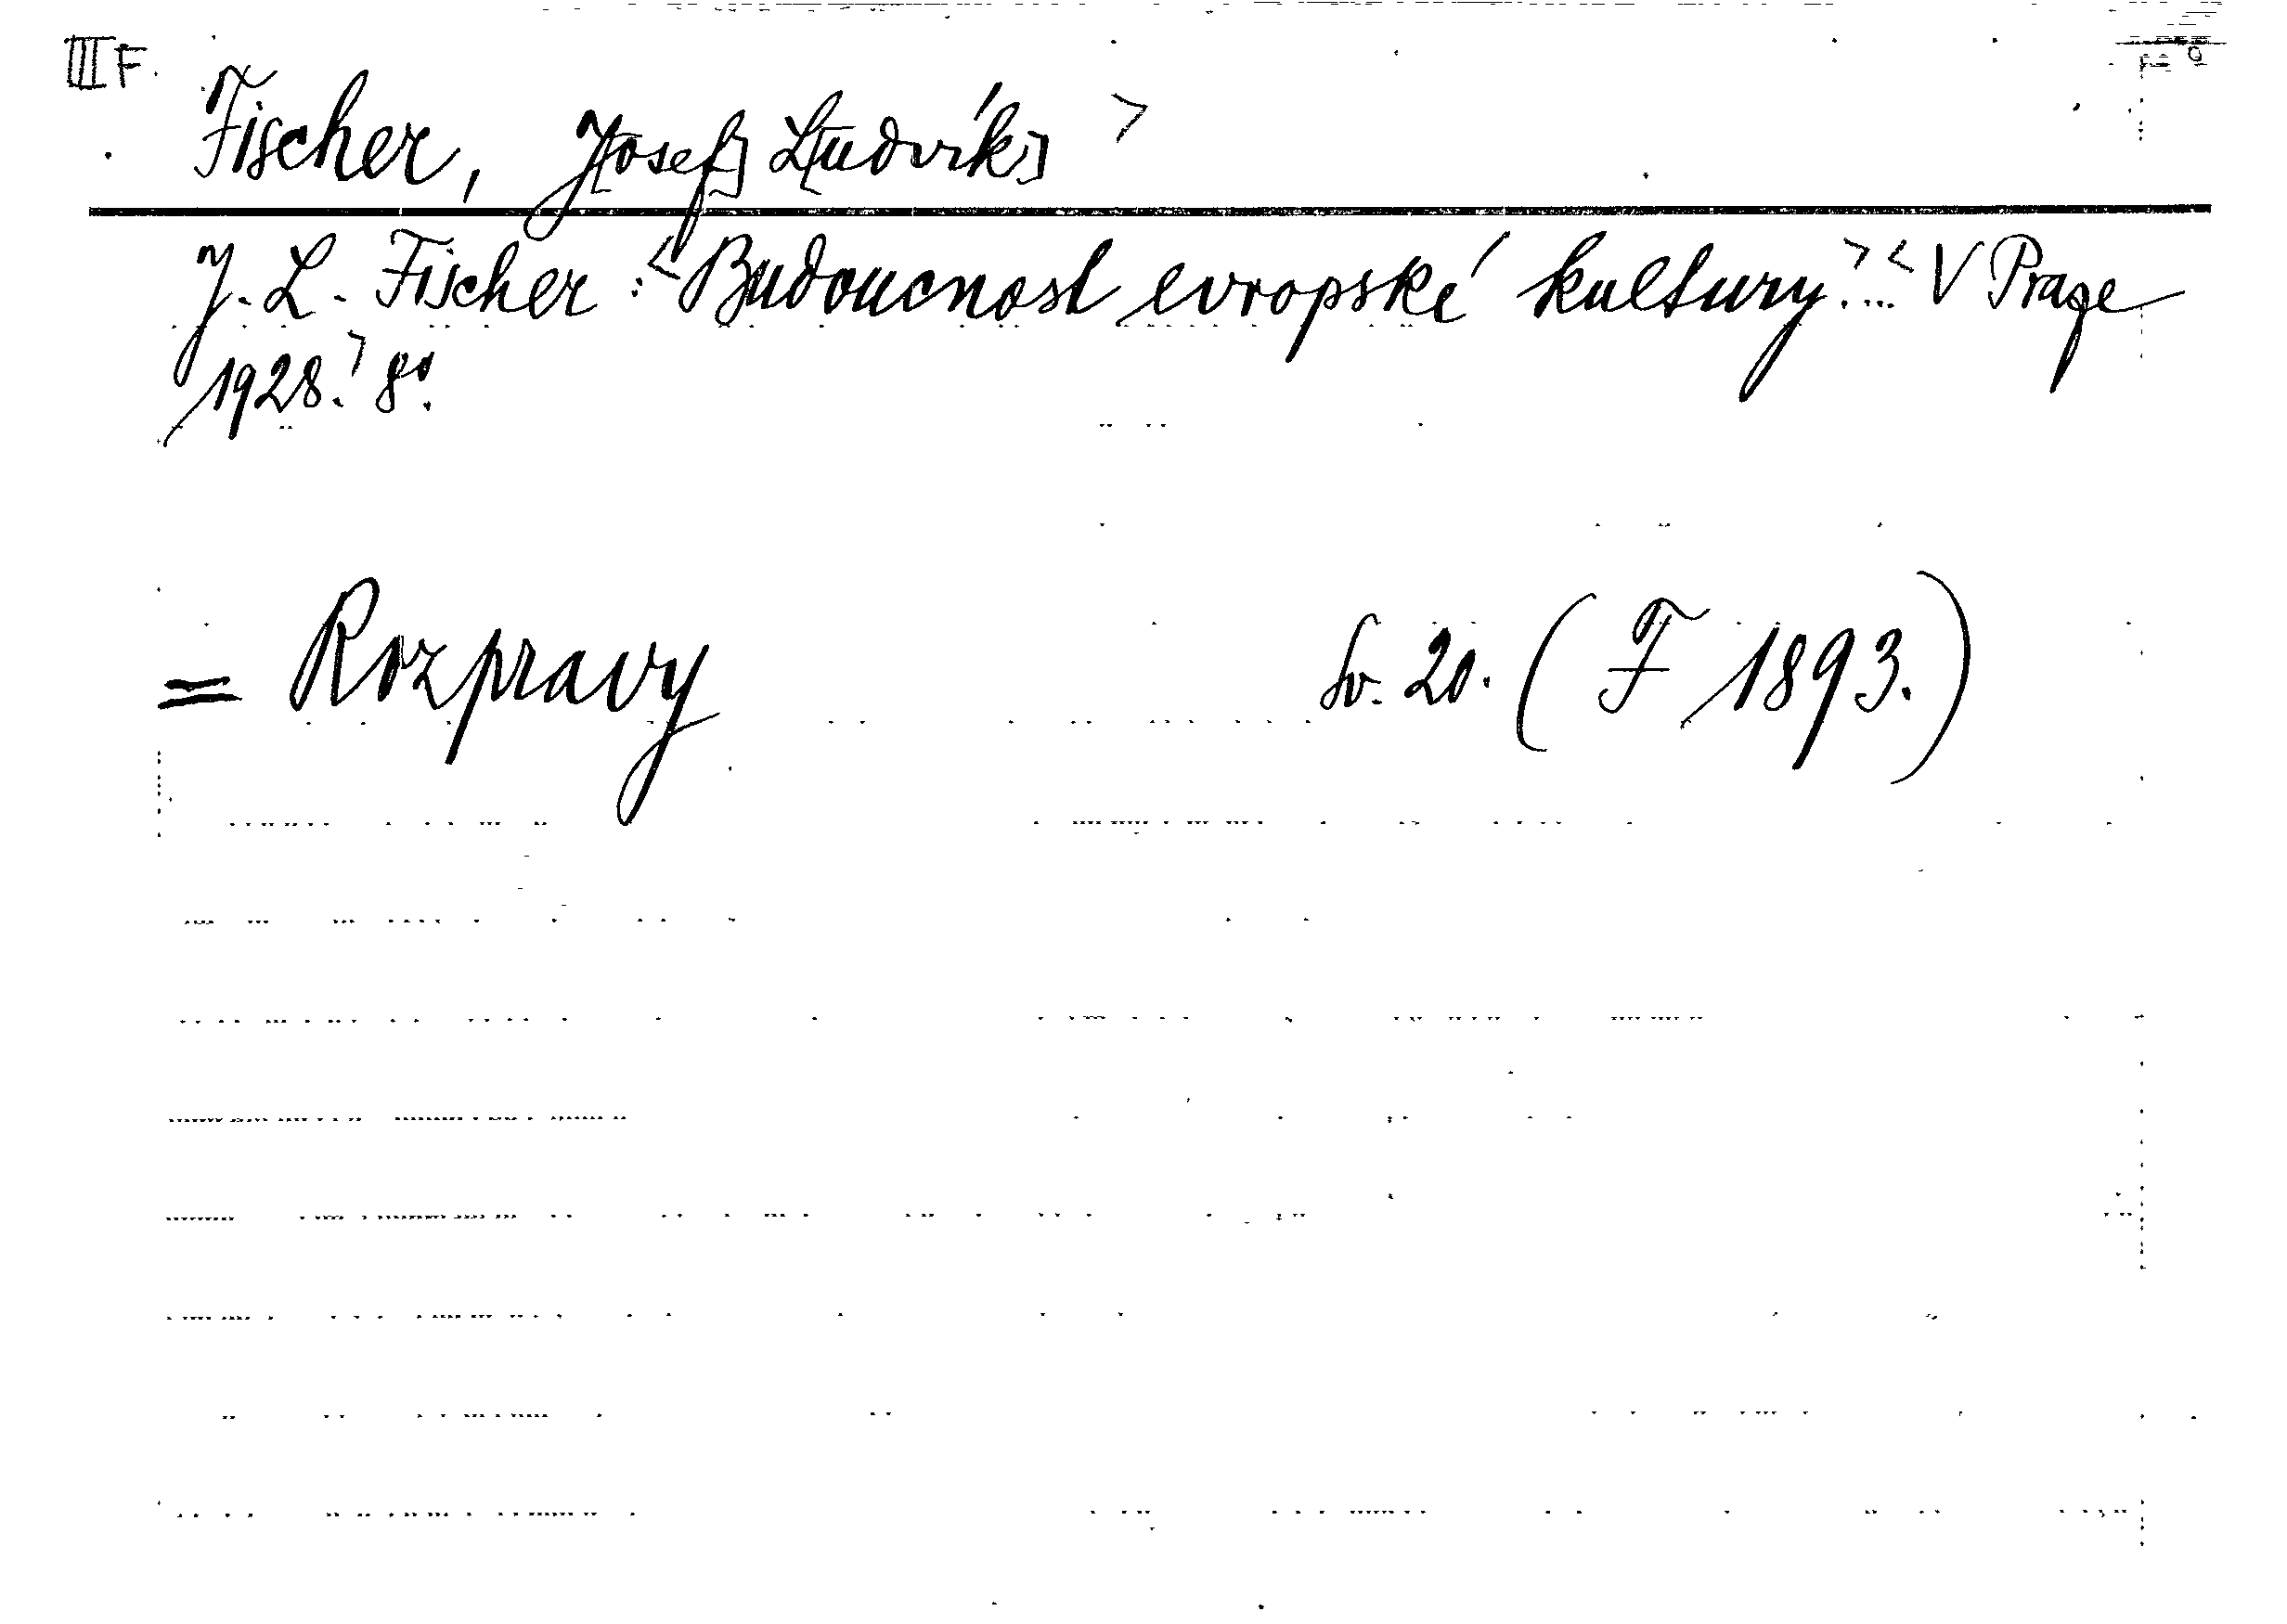 III F.
Fischer, J[osef] L[udvík]>
J. L. Fischer: <Budoucnost evropské kultury.>...< V Praze
1928.> 8°.
= Rozpravy Sv. 20. (F 1893.)